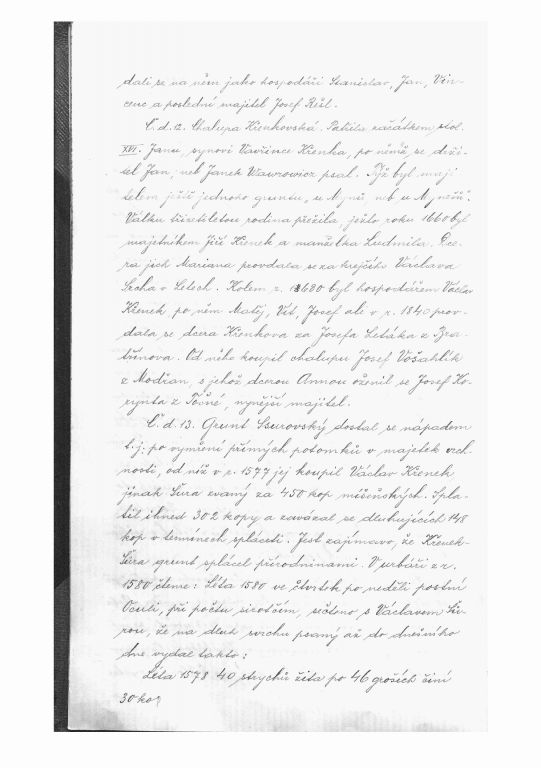 dali se na něm jako hospodáři Stanislav, Jan, Vin-
cenc a poslední majitel Josef Režl.
Č.d. 12. Chalupa Křenkovská. Patřila začátkem stol.
XVI. Janu, synovi Vavřince Křenka, po němž se drži-
tel Jan, neb Janek Wawrowicz psal. Týž byl maji
telem ještě jednoho gruntu,
Válku třicetiletou rodina přežila ježto roku 1660 byl
majetníkem Jiří Křenek a manželka Ludmila. Dce-
ra jich Mariana provdala se za krejčího Václava
v Letech. Kolem r. 1680 byl hospodářem Václav
Křenek po něm Matěj, Vít, Josef ale v r. 1840 prov-
dala se dcera Křenkova za Josefa Letáka z
Od něho koupil chalupu Josef Vošahlík
z Modřan, s jehož dcerou Annou oženil se Josef Ko-
rynta z nynější majitel.
Č.d. 13. Grunt Ssurovský dostal se nápadem
t.j: po vymření přímých potomků v majetek vrch-
nosti, od níž v r. 1577 jej koupil Václav Křenek
jinak Šůra zvaný za 450 kop míšeňských. Spla-
til ihned 302 kopy a zavázal se dluhujících 148
kop v termínech spláceti. Jest zajímavo, že Křenek-
Šůra grunt splácel přírodninami. V urbáři z r.
1580 čteme: Léta 1580 ve čtvrtek po neděli postní
Oculi, při počtu sirotčím, sečteno s Václavem Šů-
rou, že na dluh svrchu psaný až do dnešního
dne vydal takto:
Léta 1578 40 strychů žita po 46 groších činí
30 kop